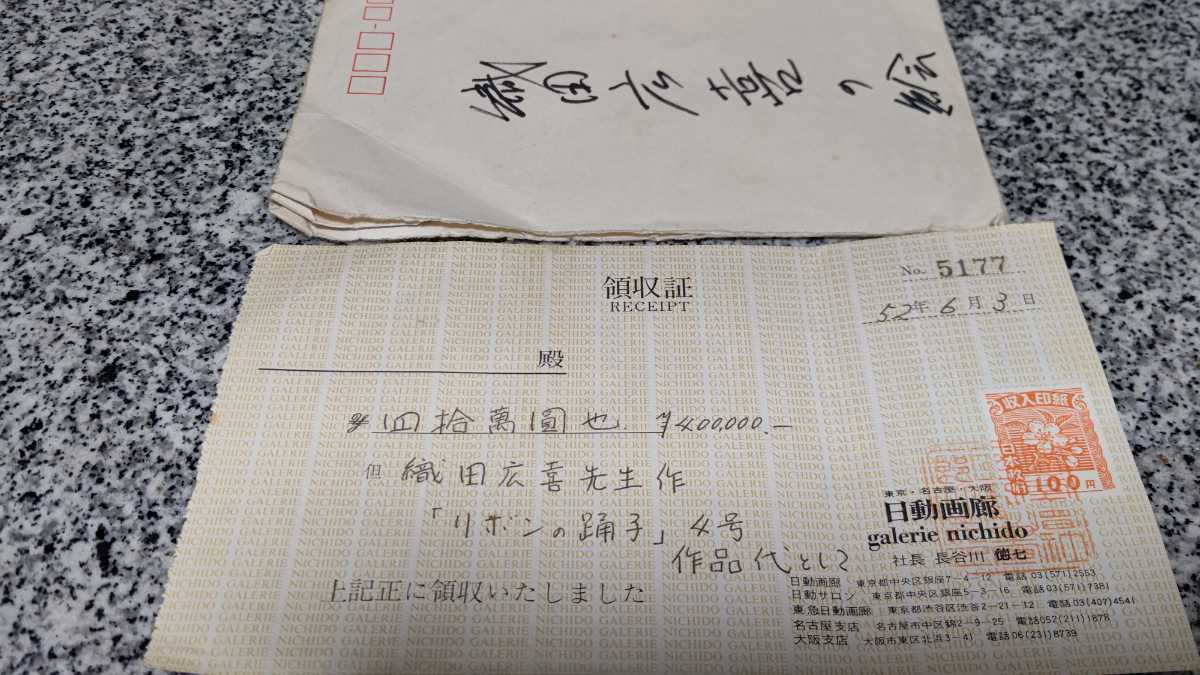 織田広喜の絵
No. 5177
領収証
RECEIPT
52年6月3日
殿
四拾萬圓也 ¥400,000.—
但 織田広喜先生作
「リボンの踊子」4号
作品代として
上記正に領収いたしました
収入印紙
100円
東京・名古屋・大阪
日動画廊
galerie nichido
社長 長谷川 徳七
日動画廊 東京都中央区銀座7-4-12 電話03(571)2553
日動サロン 東京都中央区銀座5-3-16 電話03(571)7381
東急日動画廊 東京都渋谷区渋谷2-21-12 電話03(407)4541
名古屋支店 名古屋市中区錦2-9-25 電話052(211)1878
大阪支店 大阪市東区北浜3-41 電話06(231)8739
NICHIDO GALERIE NICHIDO GALERIE NICHIDO GALERIE